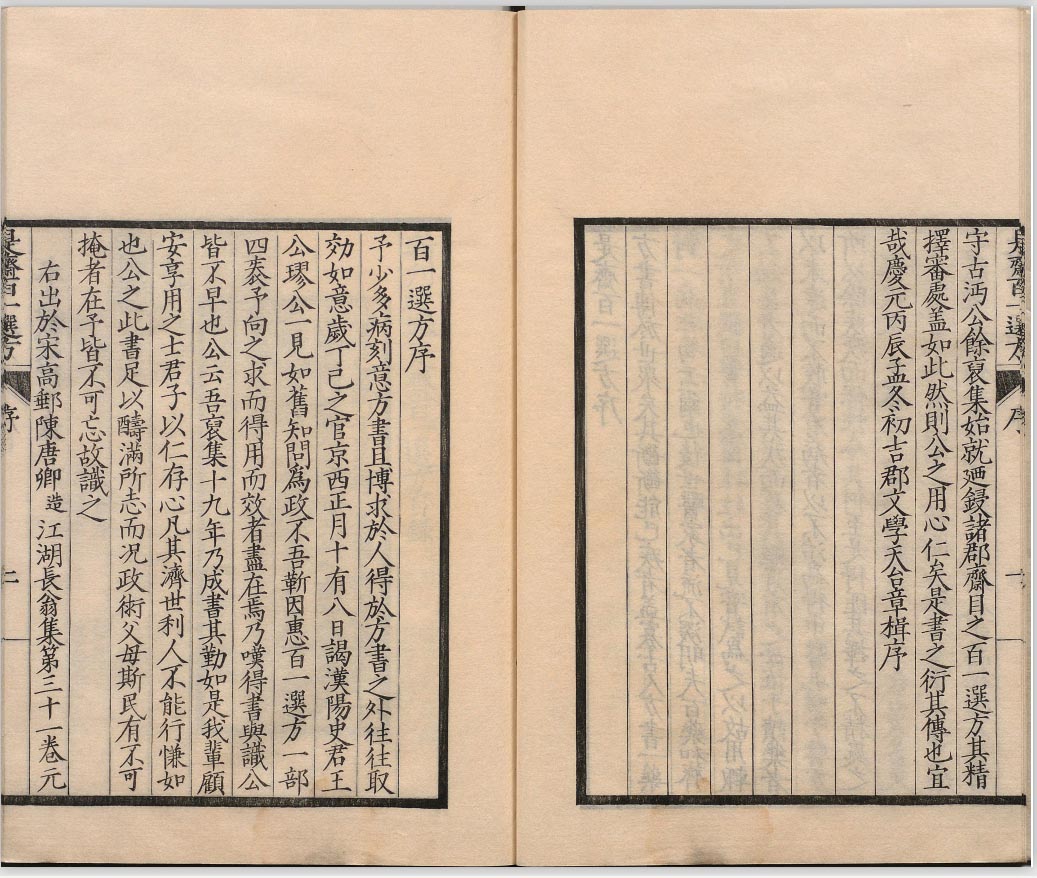 守古沔公餘裒集始就廼鋟諸郡齋目之百一選方其精
擇審處盖如此然則公之用心仁矣是書之衍其傳也宜
哉慶元丙辰孟冬初吉郡文學天台章楫序
序
一
百一選方序
予少多病刻意方書且博求於人得於方書之外往往取
効如意歲丁己之官京西正月十有八日謁漢陽史君王
公璆公一見如舊知問為政不吾靳因惠百一選方一部
四袠予向之求而得用而效者盡在焉乃嘆得書與識公
皆不早也公云吾裒集十九年乃成書其勤如是我輩顧
安享用之士君子以仁存心凡其濟世利人不能行慊如
也公之此書足以醻滿所志而况政術父母斯民有不可
掩者在予皆不可忘故識之
右出於宋高郵陳唐卿造江湖長翁集第三十一卷元
是齋百一選方
序
二